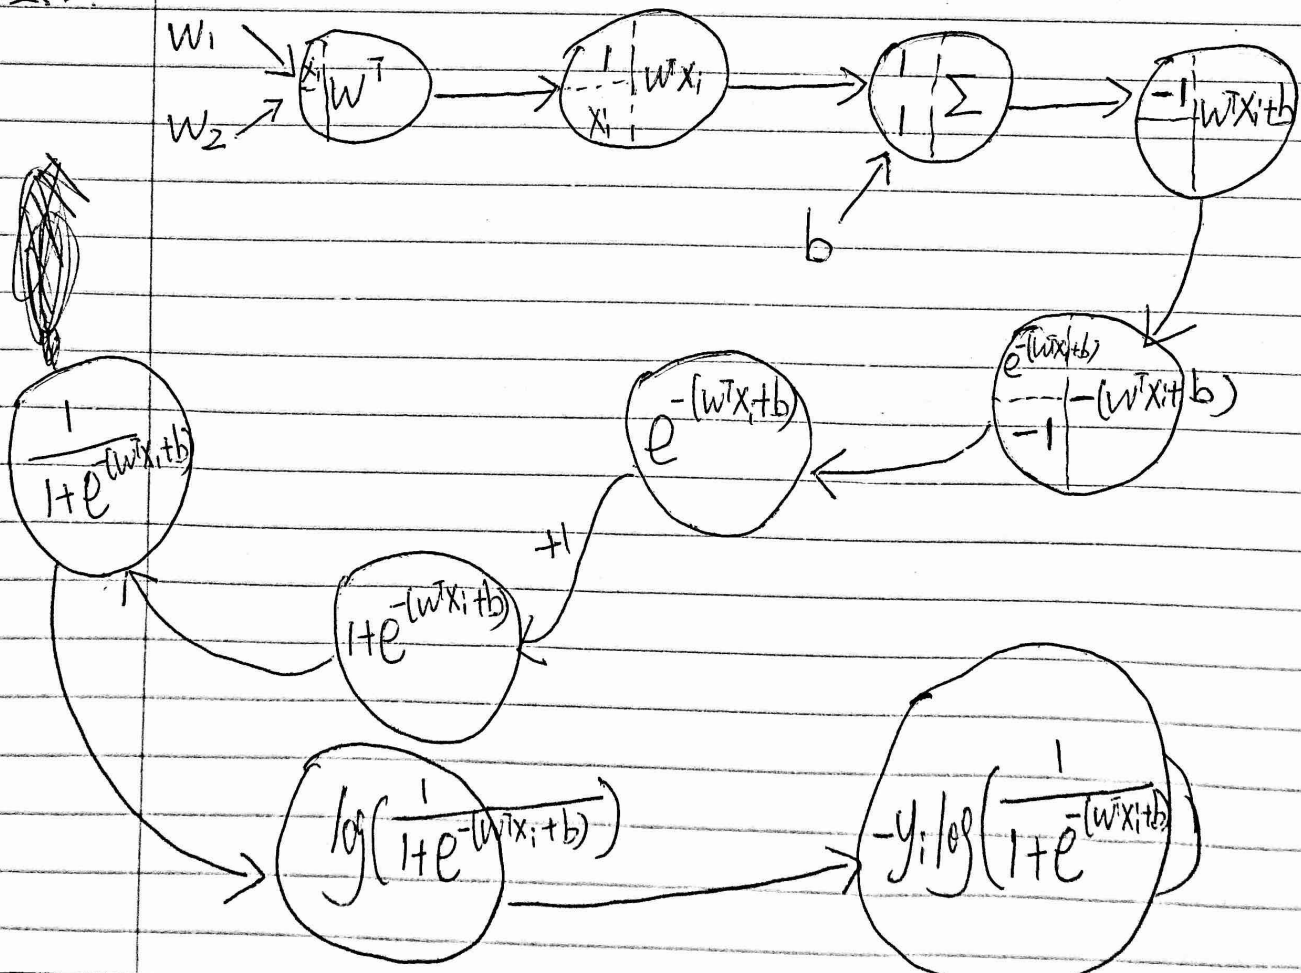 W₁
W₂
xᵢ Wᵀ
1 xᵢ WᵀXᵢ
1 1 Σ
b
-1 WᵀXᵢ+b
e^-(WᵀXᵢ+b) -1 -(WᵀXᵢ+b)
e^-(WᵀXᵢ+b)
+1
1+e^-(WᵀXᵢ+b)
1/(1+e^-(WᵀXᵢ+b))
log(1/(1+e^-(WᵀXᵢ+b)))
-yᵢ log(1/(1+e^-(WᵀXᵢ+b)))